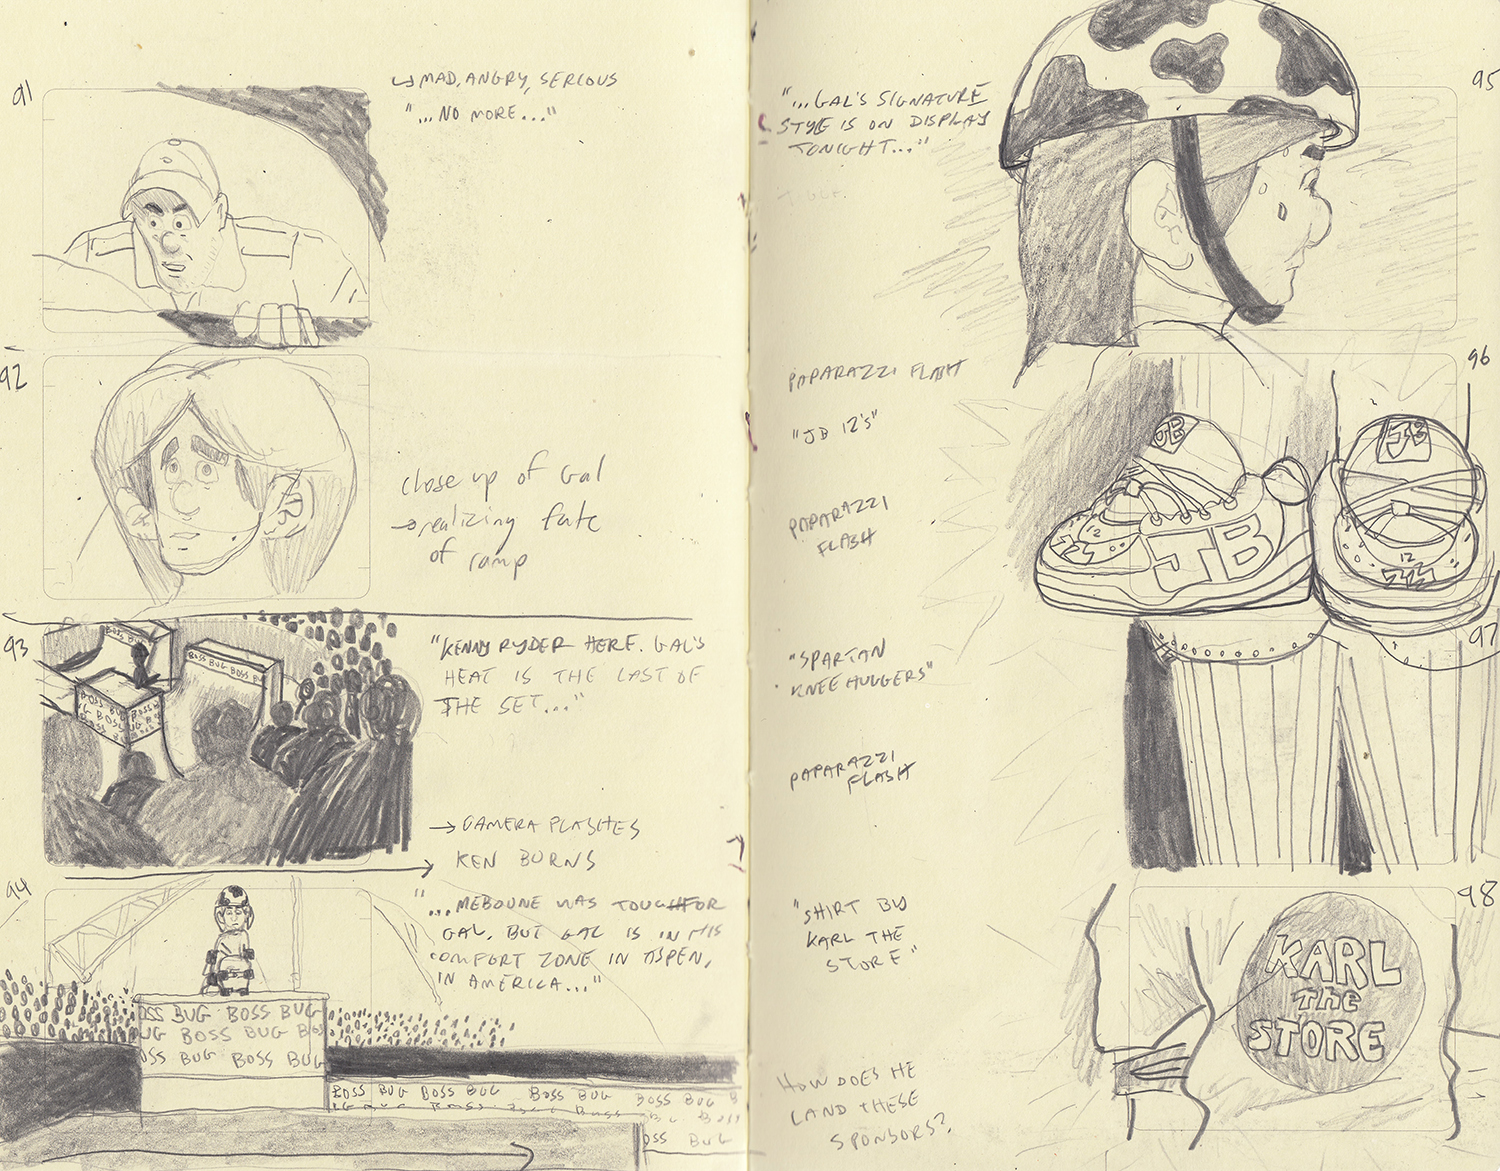 91
↳ MAD, ANGRY, SERIOUS
"...NO MORE..."
92
close up of Gal
→ realizing fate
of ramp
93
BOSS BUG
BOSS BUG BOSS BUG
BOSS
BOSS
BOSS
"KENNY RYDER HERE. GAL'S
HEAT IS THE LAST OF
THE SET..."
→ CAMERA FLASHES
KEN BURNS
94
"...MEBOUNE WAS TOUGH FOR
GAL, BUT GAL IS IN HIS
COMFORT ZONE IN ASPEN,
IN AMERICA..."
OSS BUG BOSS BUG
UG BOSS BUG BOSS
OSS BUG BOSS BUG
BOSS BUG BOSS BUG BOSS BUG BOSS BUG B
OSS BUG
95
"...GAL'S SIGNATURE
STYLE IS ON DISPLAY
TONIGHT..."
96
PAPARAZZI FLASH
"JB 12'S"
JB
JB
12
JB
12
PAPARAZZI
FLASH
97
"SPARTAN
KNEE HUGGERS"
PAPARAZZI
FLASH
98
"SHIRT BY
KARL THE
STORE"
KARL
THE
STORE
HOW DOES HE
LAND THESE
SPONSORS?